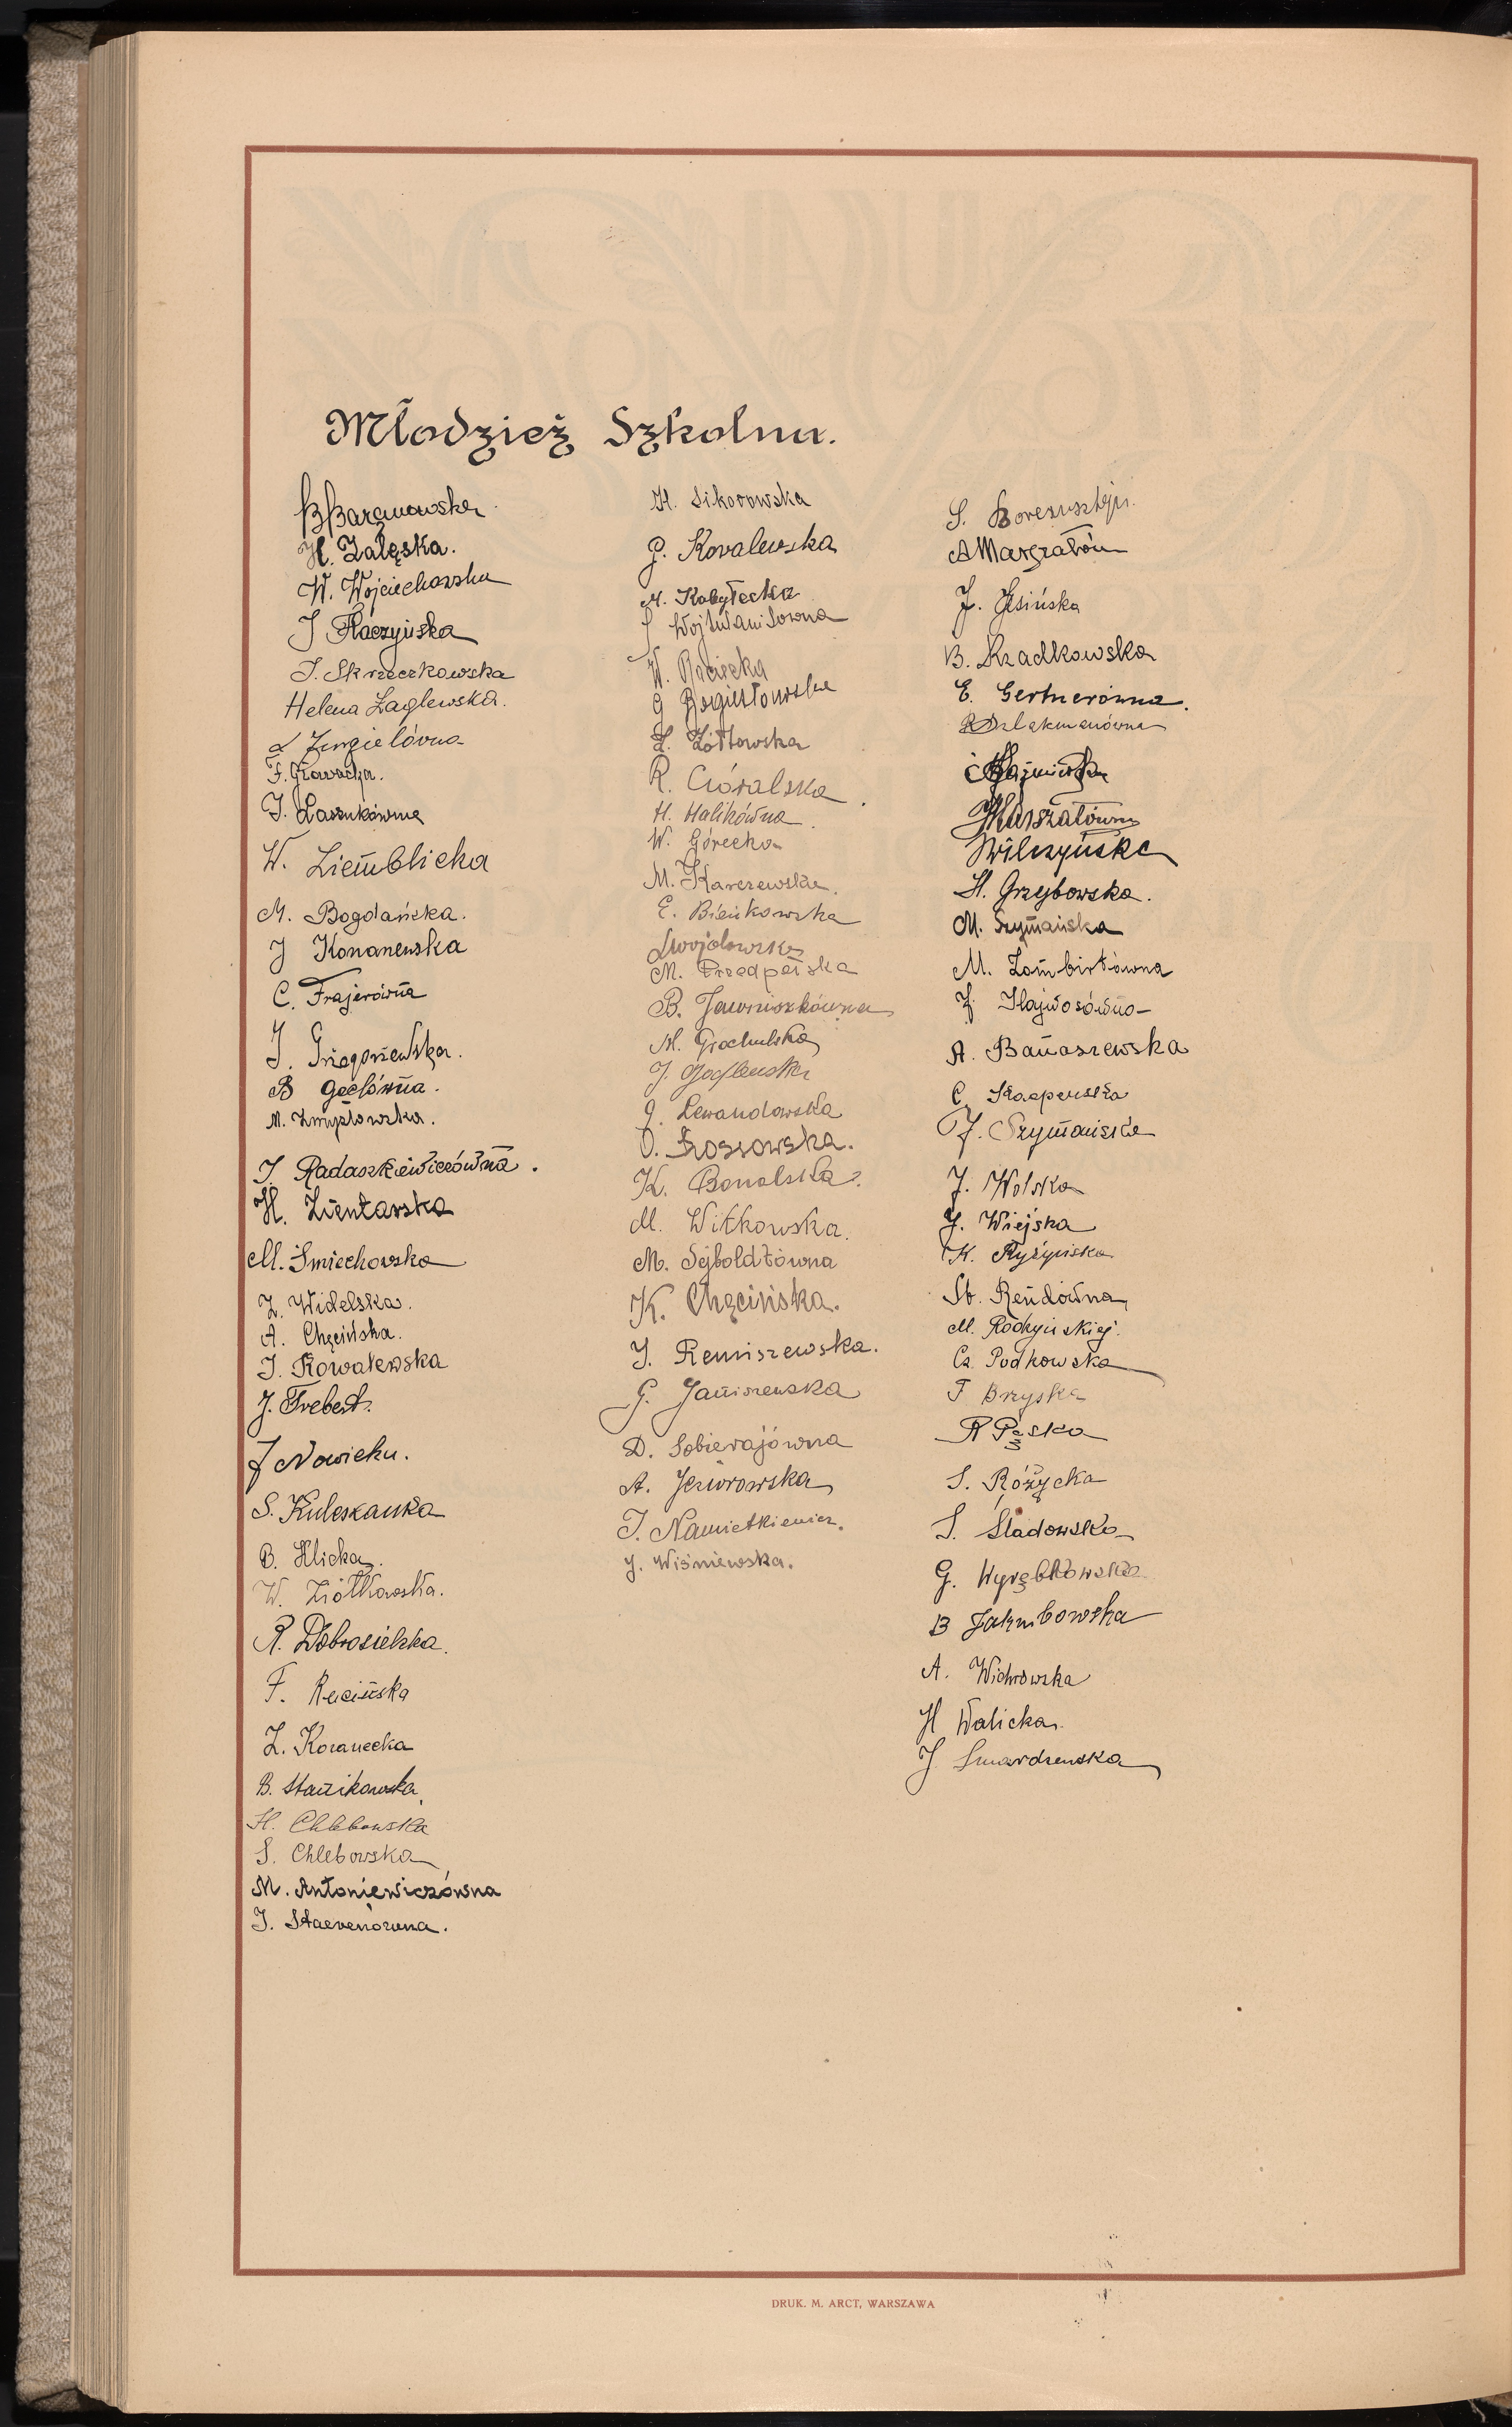 Młodzież Szkolna.
B Baranowska
H. Zalęska.
W. Wojciechowska
J Raczyńska
J. Skrzeczkowska
Helena Żaglewska.
F. Głowacka.
J. Laszukówna
W. Ziemblicka
M. Bogdańska.
J Konanewska
C. Frajerówna
J. Grzegorzewska.
B Gaclówna.
M. Zmysłowska.
J. Radaszkiewiczówna.
H. Zientarska
M. Śmiechowska
Z. Widelska.
A. Chęcińska.
J. Kowalewska
J. Trebert.
J Nowicka.
S. Kuleszanka
B. Ilicka.
W. Ziółkowska.
R. Dobrosielska.
F. Rucińska
Z. Koranecka
B. Stanikowska
H. Chlebowska
S. Chlebowska
M. Antoniewiczówna
J. Staevenówna.
H. Sikorowska
J. Kovalewska
M. Kobyłecka
W. Raciecka
Z. Żółtowska
R. Góralska
H. Halikówna
W. Górecka
M. Karczewska.
E. Bieńkowska
M. Przedpełska
B. Jawniszkówna
M. Grochulska
J. Lewandowska
O. Frossowska.
K. Bonalska.
M. Witkowska.
M. Sejboldtówna
K. Chęcińska.
J. Remiszewska.
G. Janiszewska
D. Sobierajówna
A. Jeziorowska
J. Namietkiewicz.
J. Wiśniewska.
S. Borensztejn.
J. Jesińska
B. Rzadkowska
E. Gertnerówna.
J Marszałówna
Wilczyńska
H. Grzybowska.
M. Szymańska
M. Zambirtówna
A. Banaszewska
C. Kacperska
J. Szymańska
J. Wolska
J. Wiejska
K. Ryżyńska
St. Rendówna
M. Rodkyińskiej.
Cz. Podkowska
F Bryska
R Pąska
S. Różycka
S. Śladowska
G. Wyrębkowska
B Jakubowska
A. Wichrowska
H Walicka.
J Smardzewska
DRUK. M. ARCT, WARSZAWA